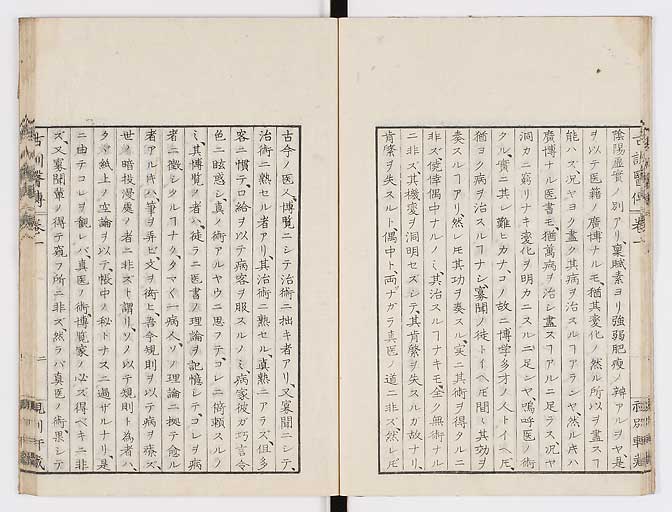 陰陽虚實ノ別アリ、稟賦素ヨリ強弱肥瘦ノ辨アルヲヤ、是
ヲ以テ医籍ノ廣博ナルモ、猶其変化ノ然ル所以ヲ盡スフ
能ハズ、况ヤヨク盡ク其病ヲ治スルフアランヤ、然ル𪜈ハ
廣博ナル医書モ、猶萬病ヲ治シ盡スフアルニ足ラス、况ヤ
洞カニ窮リナキ変化ヲ明カニスルニ足ンヤ、嗚呼医ノ術
クル、實ニ其レ難ヒカナ、コノ故ニ博学多才ノ人トイヘ𪜈、
猶ヨク病ヲ治スルフナシ、寡聞ノ徒トイヘ𪜈、間〻其功ヲ
奏スルフアリ、然レ𪜈其功ヲ奏スル、実ニ其術ヲ得タルニ
非ズ、僥倖偶中ナルノミ、其治スルフナキモ、全ク無術ナル
ニ非ズ、其機変ヲ洞明セズシテ、其肯綮ヲ失スルカ故ナリ、
肯綮ヲ失スルト偶中ト、両ナガラ真医ノ道ニ非ズ、然レ𪜈
古今ノ医人、博覧ニシテ治術ニ拙キ者アリ、又寡聞ニシテ、
治術ニ熟セル者アリ、其治術ニ熟セル、真熟ニアラズ、但多
客ニ慣テ、口給ヲ以テ病客ヲ服スルノミ、病家彼ガ巧言令
色ニ眩惑シ、真ノ術アルヤウニ思フテ、コレニ倚頼スルノ
ミ、其博覧ノ者ハ、徒ラニ医書ノ理論ヲ記憶シテ、コレヲ病
者ニ徴シタルフナク、タマ〱一病人ソノ理論ニ拠テ愈ル
者アル𪜈ハ、筆ヲ弄ビ、文ヲ衒ヒ、吾今規則ヲ以テ病ヲ療ズ、
世ノ暗投漫処ノ者ニ非ズト謂リ、ソノ以テ規則ト為者ハ、
タヾ紙上ノ空論ヲ以テ、帳中ノ秘トナスニ過ザルナリ、是
ニ由テコレヲ観レバ、真医ノ術、博覧家ノ必ズ得ベキニ非
ズ、又寡聞輩ノ得テ窺フ所ニ非ズ、然ラバ真医ノ術果シテ
古訓醫傳 卷一
二